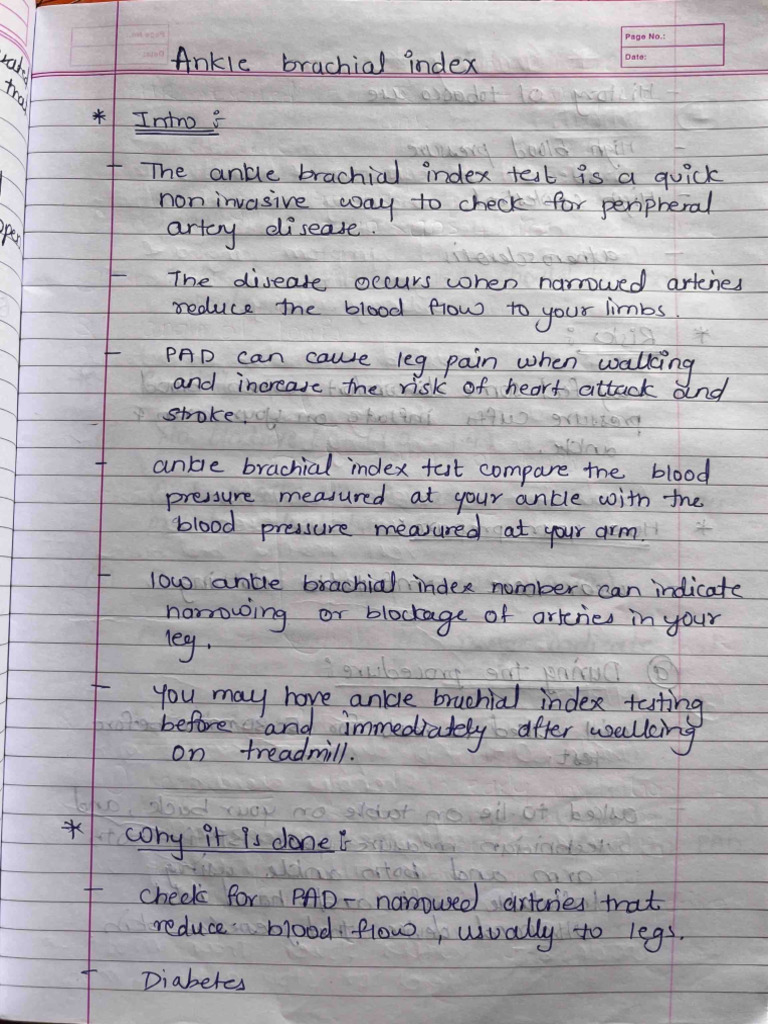 Page No.:
Date:
Ankle brachial index
* Intro :-
- The ankle brachial index test is a quick
non invasive way to check for peripheral
artery disease.
- The disease occurs when narrowed arteries
reduce the blood flow to your limbs.
- PAD can cause leg pain when walking
and increase the risk of heart attack and
stroke.
- ankle brachial index test compare the blood
pressure measured at your ankle with the
blood pressure measured at your arm.
- low ankle brachial index nomber can indicate
narrowing or blockage of arteries in your
leg.
- you may have ankle brachial index testing
before and immediately after walking
on treadmill.
* Why it is done :-
- check for PAD - narrowed arteries that
reduce blood flow, usually to legs.
- Diabetes